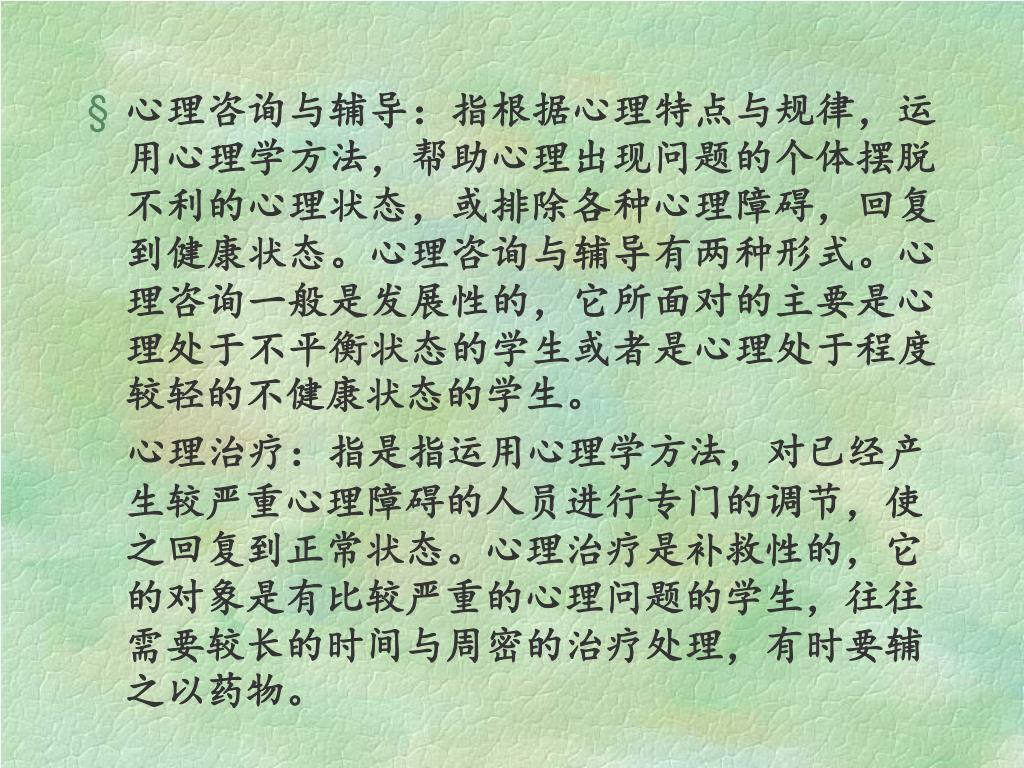 § 心理咨询与辅导：指根据心理特点与规律，运
用心理学方法，帮助心理出现问题的个体摆脱
不利的心理状态，或排除各种心理障碍，回复
到健康状态。心理咨询与辅导有两种形式。心
理咨询一般是发展性的，它所面对的主要是心
理处于不平衡状态的学生或者是心理处于程度
较轻的不健康状态的学生。
心理治疗：指是指运用心理学方法，对已经产
生较严重心理障碍的人员进行专门的调节，使
之回复到正常状态。心理治疗是补救性的，它
的对象是有比较严重的心理问题的学生，往往
需要较长的时间与周密的治疗处理，有时要辅
之以药物。